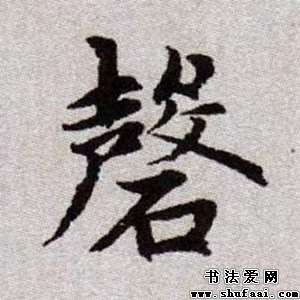 磬
书法爱网
www.shufaai.com